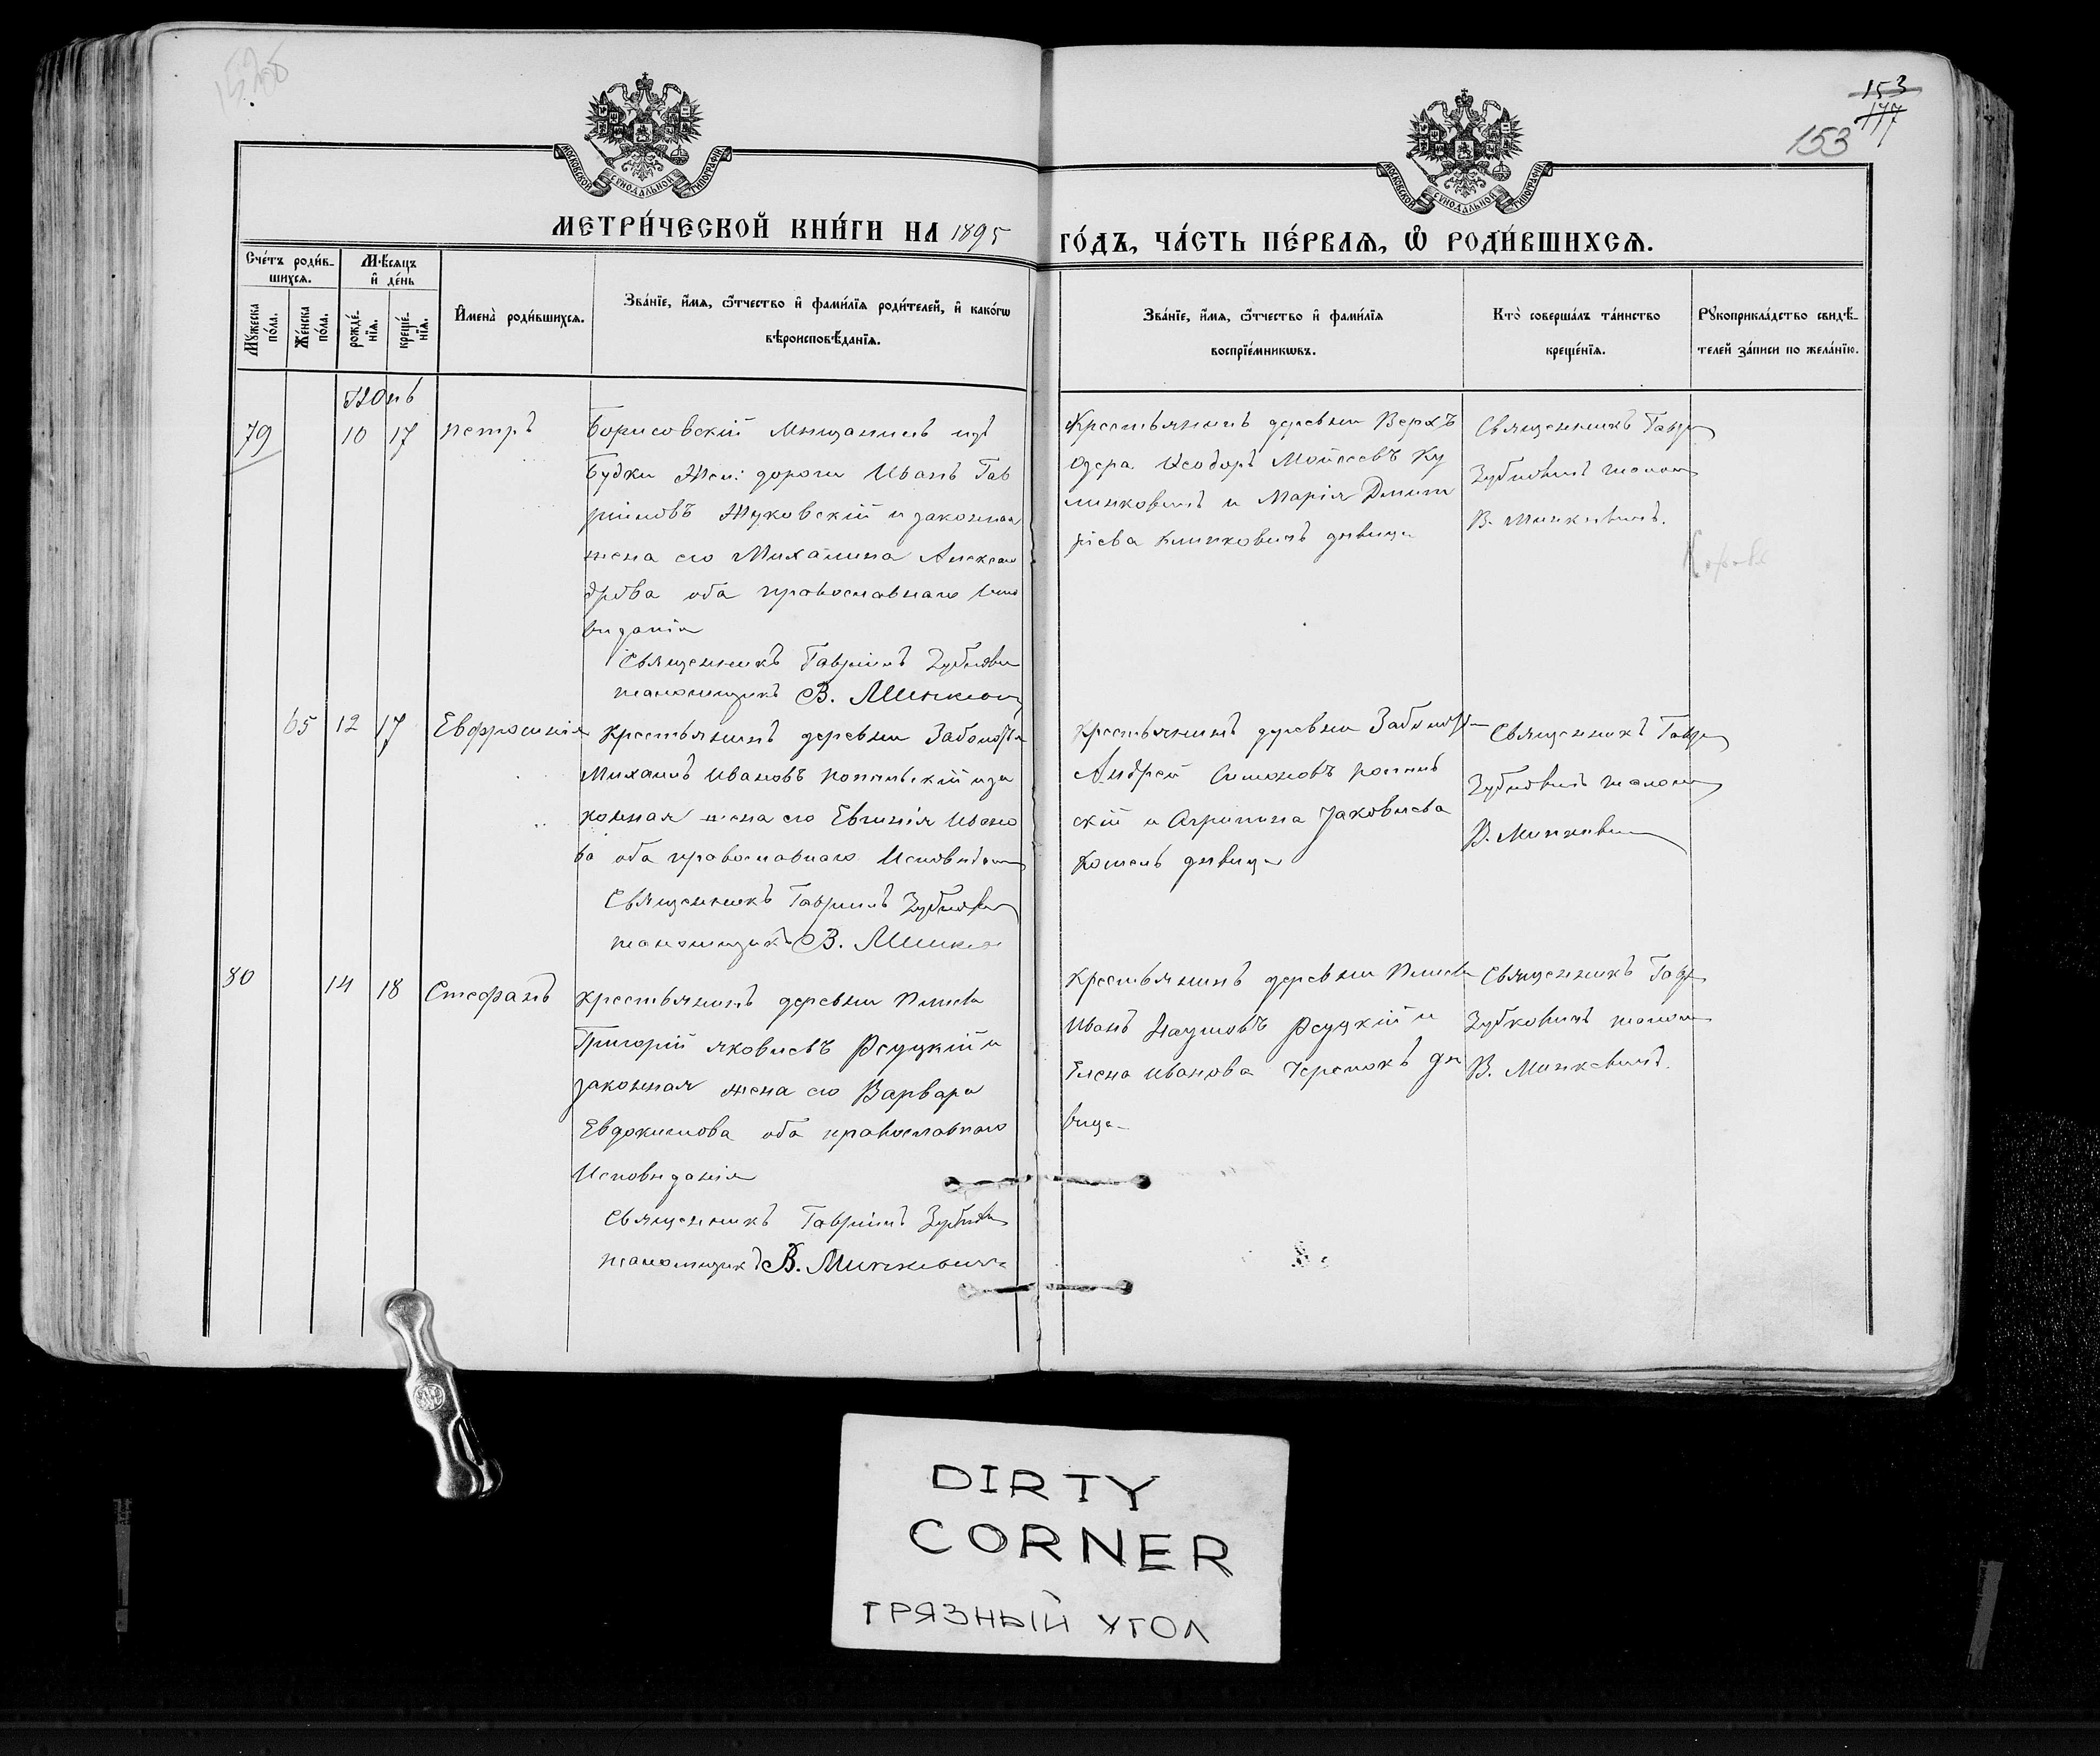 153
177
153
МОСКОВСКОЙ СѴНОДАЛЬНОЙ ТИПОГРАФІИ
МОСКОВСКОЙ СѴНОДАЛЬНОЙ ТИПОГРАФІИ
МЕТРИ́ЧЕСКОЙ КНИ́ГИ НА 1895 ГО́ДЪ, ЧА́СТЬ ПЕ́РВАѦ, Ѡ РОДИ́ВШИХСѦ.
Сче́тъ роди́в-
шихсѧ.
Мꙋ́жеска по́ла.
Же́нска по́ла.
Мѣ́сѧцъ
и҆ де́нь
рожде́-
нїѧ.
креще́-
нїѧ.
И҆мена̀ роди́вшихсѧ.
Зва́нїе, и҆́мѧ, ѻ҆́тчество и҆ фами́лїѧ роди́телей, и҆ како́гѡ
вѣроисповѣ́данїѧ.
Зва́нїе, и҆́мѧ, ѻ҆́тчество и҆ фами́лїѧ
воспрїе́мникѡвъ.
Кто̀ соверша́лъ та́инство
креще́нїѧ.
Рꙋкоприкла́дство свидѣ́-
телей за́писи по жела́нїю.
Іюнь
79 10 17 Петръ
Борисовскій Мѣщанинъ изъ
будки Жел: дороги Иванъ Гав
рииловъ Жуковскій и законная
жена его Михалина Алексан
дрова оба православнаго Испо
вѣданія
Священникъ Гавріилъ Зубкови
псаломщикъ В. Минкевич
Крестьянинъ деревни Верхъ
Озера Ѳеодоръ Мойсеевъ Ку
линковичъ и Марія Димит
ріева Климковичъ дѣвица
Священникъ Гавр
Зубковичъ псалом
В. Минкевичъ.
65 12 17 Евфросинія
Крестьянинъ деревни Заболотья
Михаилъ Ивановъ и за
конная жена его Евгенія Ивано
ва оба православнаго Исповѣдан
Священникъ Гавріилъ Зубкови
псаломщикъ В. Минкев
Крестьянинъ деревни Заболотья
Андрей Симоновъ
скій и Агрипина Яковлева
Кошель дѣвица
Священникъ Гавр
Зубковичъ псалом
В. Минкеви
80 14 18 Стефанъ
Крестьянинъ деревни
Григорій Яковлевъ Реуцкій и
законная жена его Варвара
Евдокимова оба православнаго
Исповѣданія
Священникъ Гавріилъ Зубкови
псаломщикъ В. Минкевичъ
Крестьянинъ деревни
Иванъ Наумовъ Реуцкій и
Елена Иванова Черепокъ дѣ
вица
Священникъ Гавр
Зубковичъ псалом
В. Минкевичъ.
DIRTY
CORNER
ГРЯЗНЫЙ УГОЛ